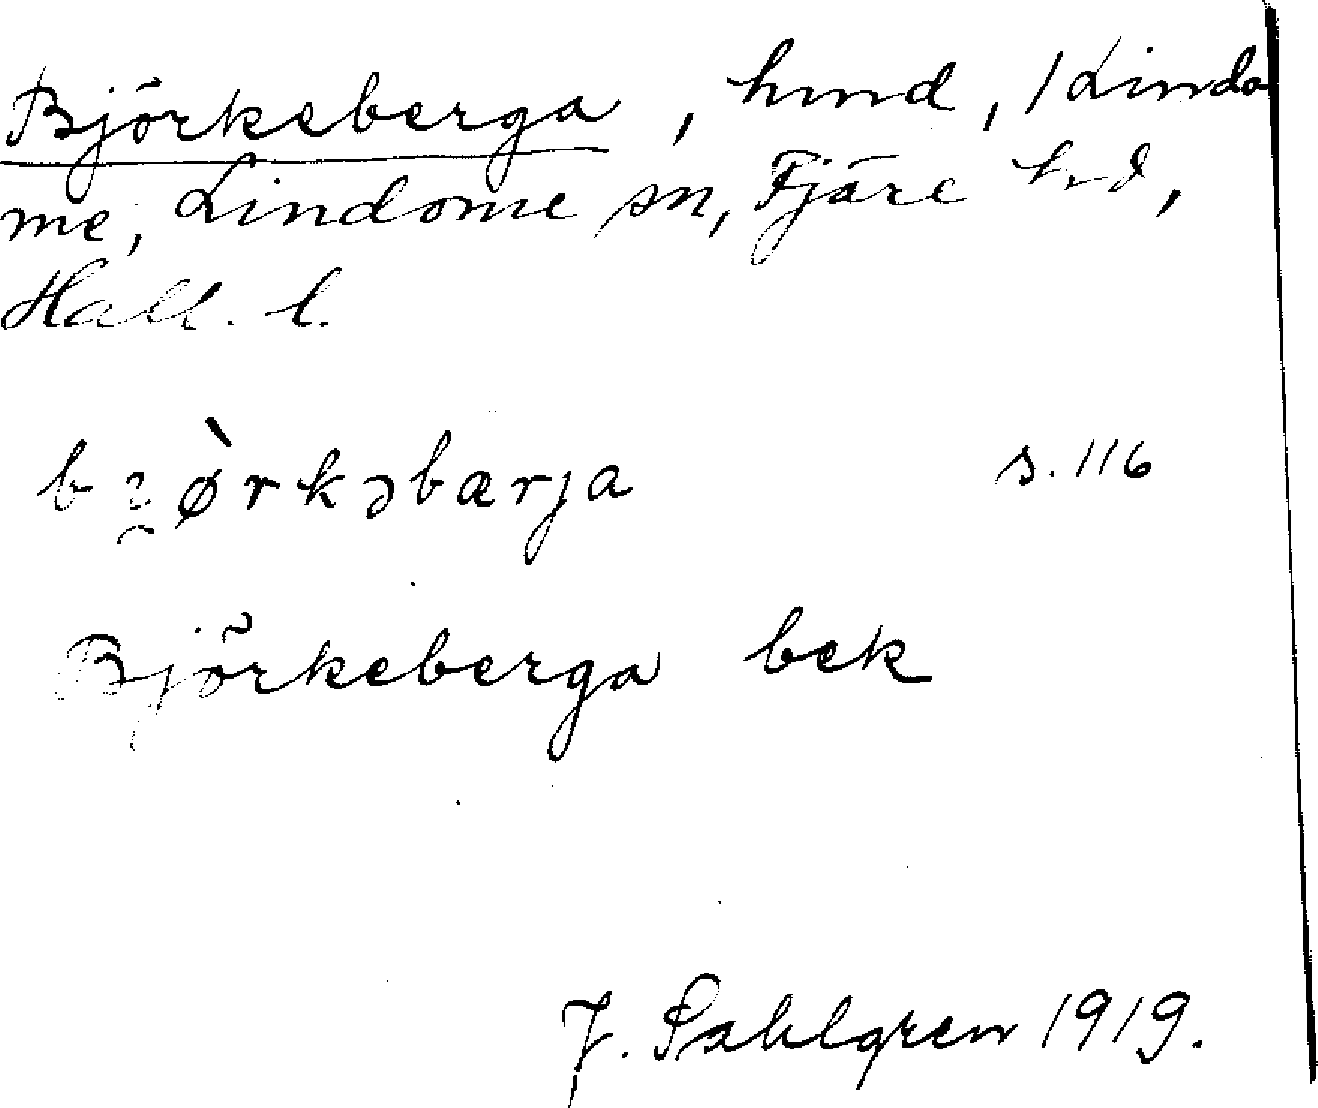 Björkeberga, hmd, 1 Lindo
me, Lindome sn, Fjäre hd,
Hall. l.
bi̯ø̀rkəbærja s. 116
Björkeberga bek
J. Sahlgren 1919.